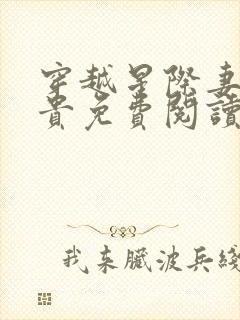 穿越星際妻
貴免費閱讀
我来臟波兵綫